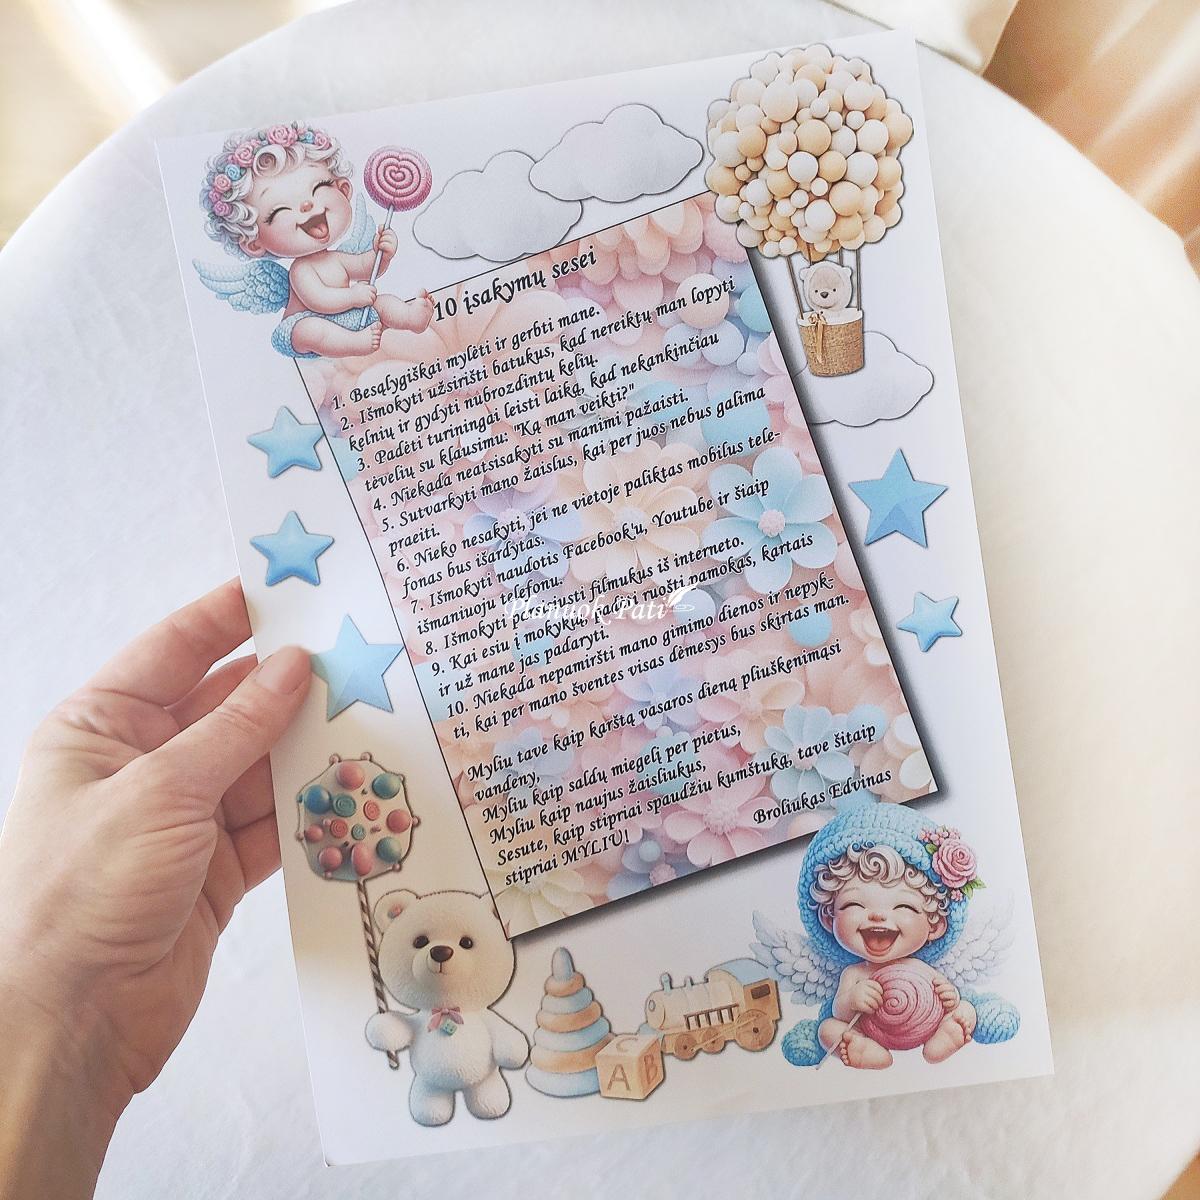 10 įsakymų sesei
1. Besąlygiškai mylėti ir gerbti mane.
2. Išmokyti užsirišti batukus, kad nereiktų man lopyti
kelnių ir gydyti nubrozdintų kelių.
3. Padėti turiningai leisti laiką, kad nekankinčiau
tėvelių su klausimu: "Ką man veikti?"
4. Niekada neatsisakyti su manimi pažaisti.
5. Sutvarkyti mano žaislus, kai per juos nebus galima
praeiti.
6. Nieko nesakyti, jei ne vietoje paliktas mobilus tele-
fonas bus išardytas.
7. Išmokyti naudotis Facebook'u, Youtube ir šiaip
išmaniuoju telefonu.
8. Išmokyti parsiųsti filmukus iš interneto.
Planuok Pati
9. Kai eisiu į mokyklą, padėti ruošti pamokas, kartais
ir už mane jas padaryti.
10. Niekada nepamiršti mano gimimo dienos ir nepyk-
ti, kai per mano šventes visas dėmesys bus skirtas man.
Myliu tave kaip karštą vasaros dieną pliuškenimąsi
vandeny,
Myliu kaip saldų miegelį per pietus,
Myliu kaip naujus žaisliukus,
Sesute, kaip stipriai spaudžiu kumštuką, tave šitaip
stipriai MYLIU!
Broliukas Edvinas
C
A B